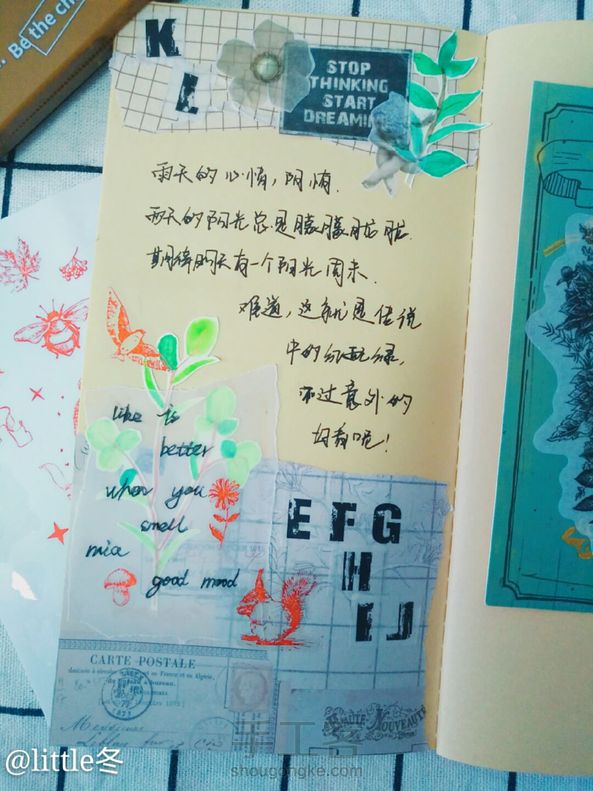 . Be the ch
K
L
STOP
THINKING
START
DREAMIN
雨天的心情,阴情.
雨天的阳光总是朦朦胧胧.
期待明天有一个阳光周末.
难道,这就是传说
中的红配绿,
不过意外的
好看呢!
like is
better
when you
smell
good mood
E F G
H
I J
CARTE POSTALE
HAUTE NOUVEAUTE
手工客
shougongke.com
@little冬